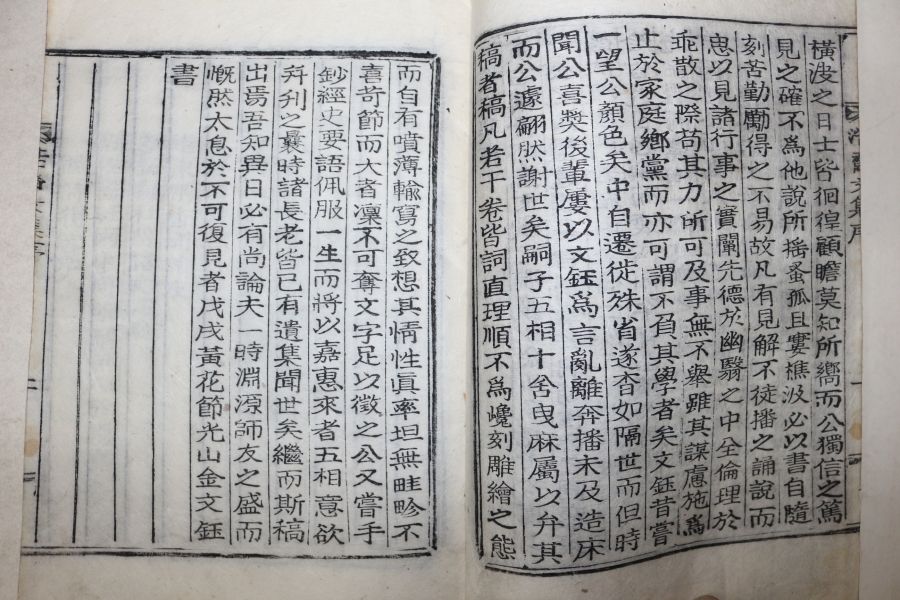 橫浚之日士皆徊徨顧瞻莫知所嚮而公獨信之篤
見之確不為他說所搖蚤孤且窶樵汲必以書自隨
刻苦勤勵得之不易故凡有見解不徒播之誦說而
思以見諸行事之實闡先德於幽翳之中全倫理於
乖散之際苟其力所可及事無不舉雖其謀慮施為
止於家庭鄉黨而亦可謂不負其學者矣文鈺昔嘗
一望公顏色矣中自遷徙殊省遂杳如隔世而但時
聞公喜奬後輩屢以文鈺爲言亂離奔播未及造床
而公遽翩然謝世矣嗣子五相十舍曳麻屬以弁其
稿者稿凡若干卷皆詞直理順不爲巉刻雕繪之態
而自有噴薄輸寫之致想其情性眞率坦無畦畛不
喜苟節而大者凜不可奪文字足以徵之公又嘗手
鈔經史要語佩服一生而將以嘉惠來者五相意欲
幷刋之曩時諸長老皆已有遺集聞世矣繼而斯稿
出焉吾知異日必有尚論夫一時淵源師友之盛而
慨然太息於不可復見者戊戌黃花節光山金文鈺
書